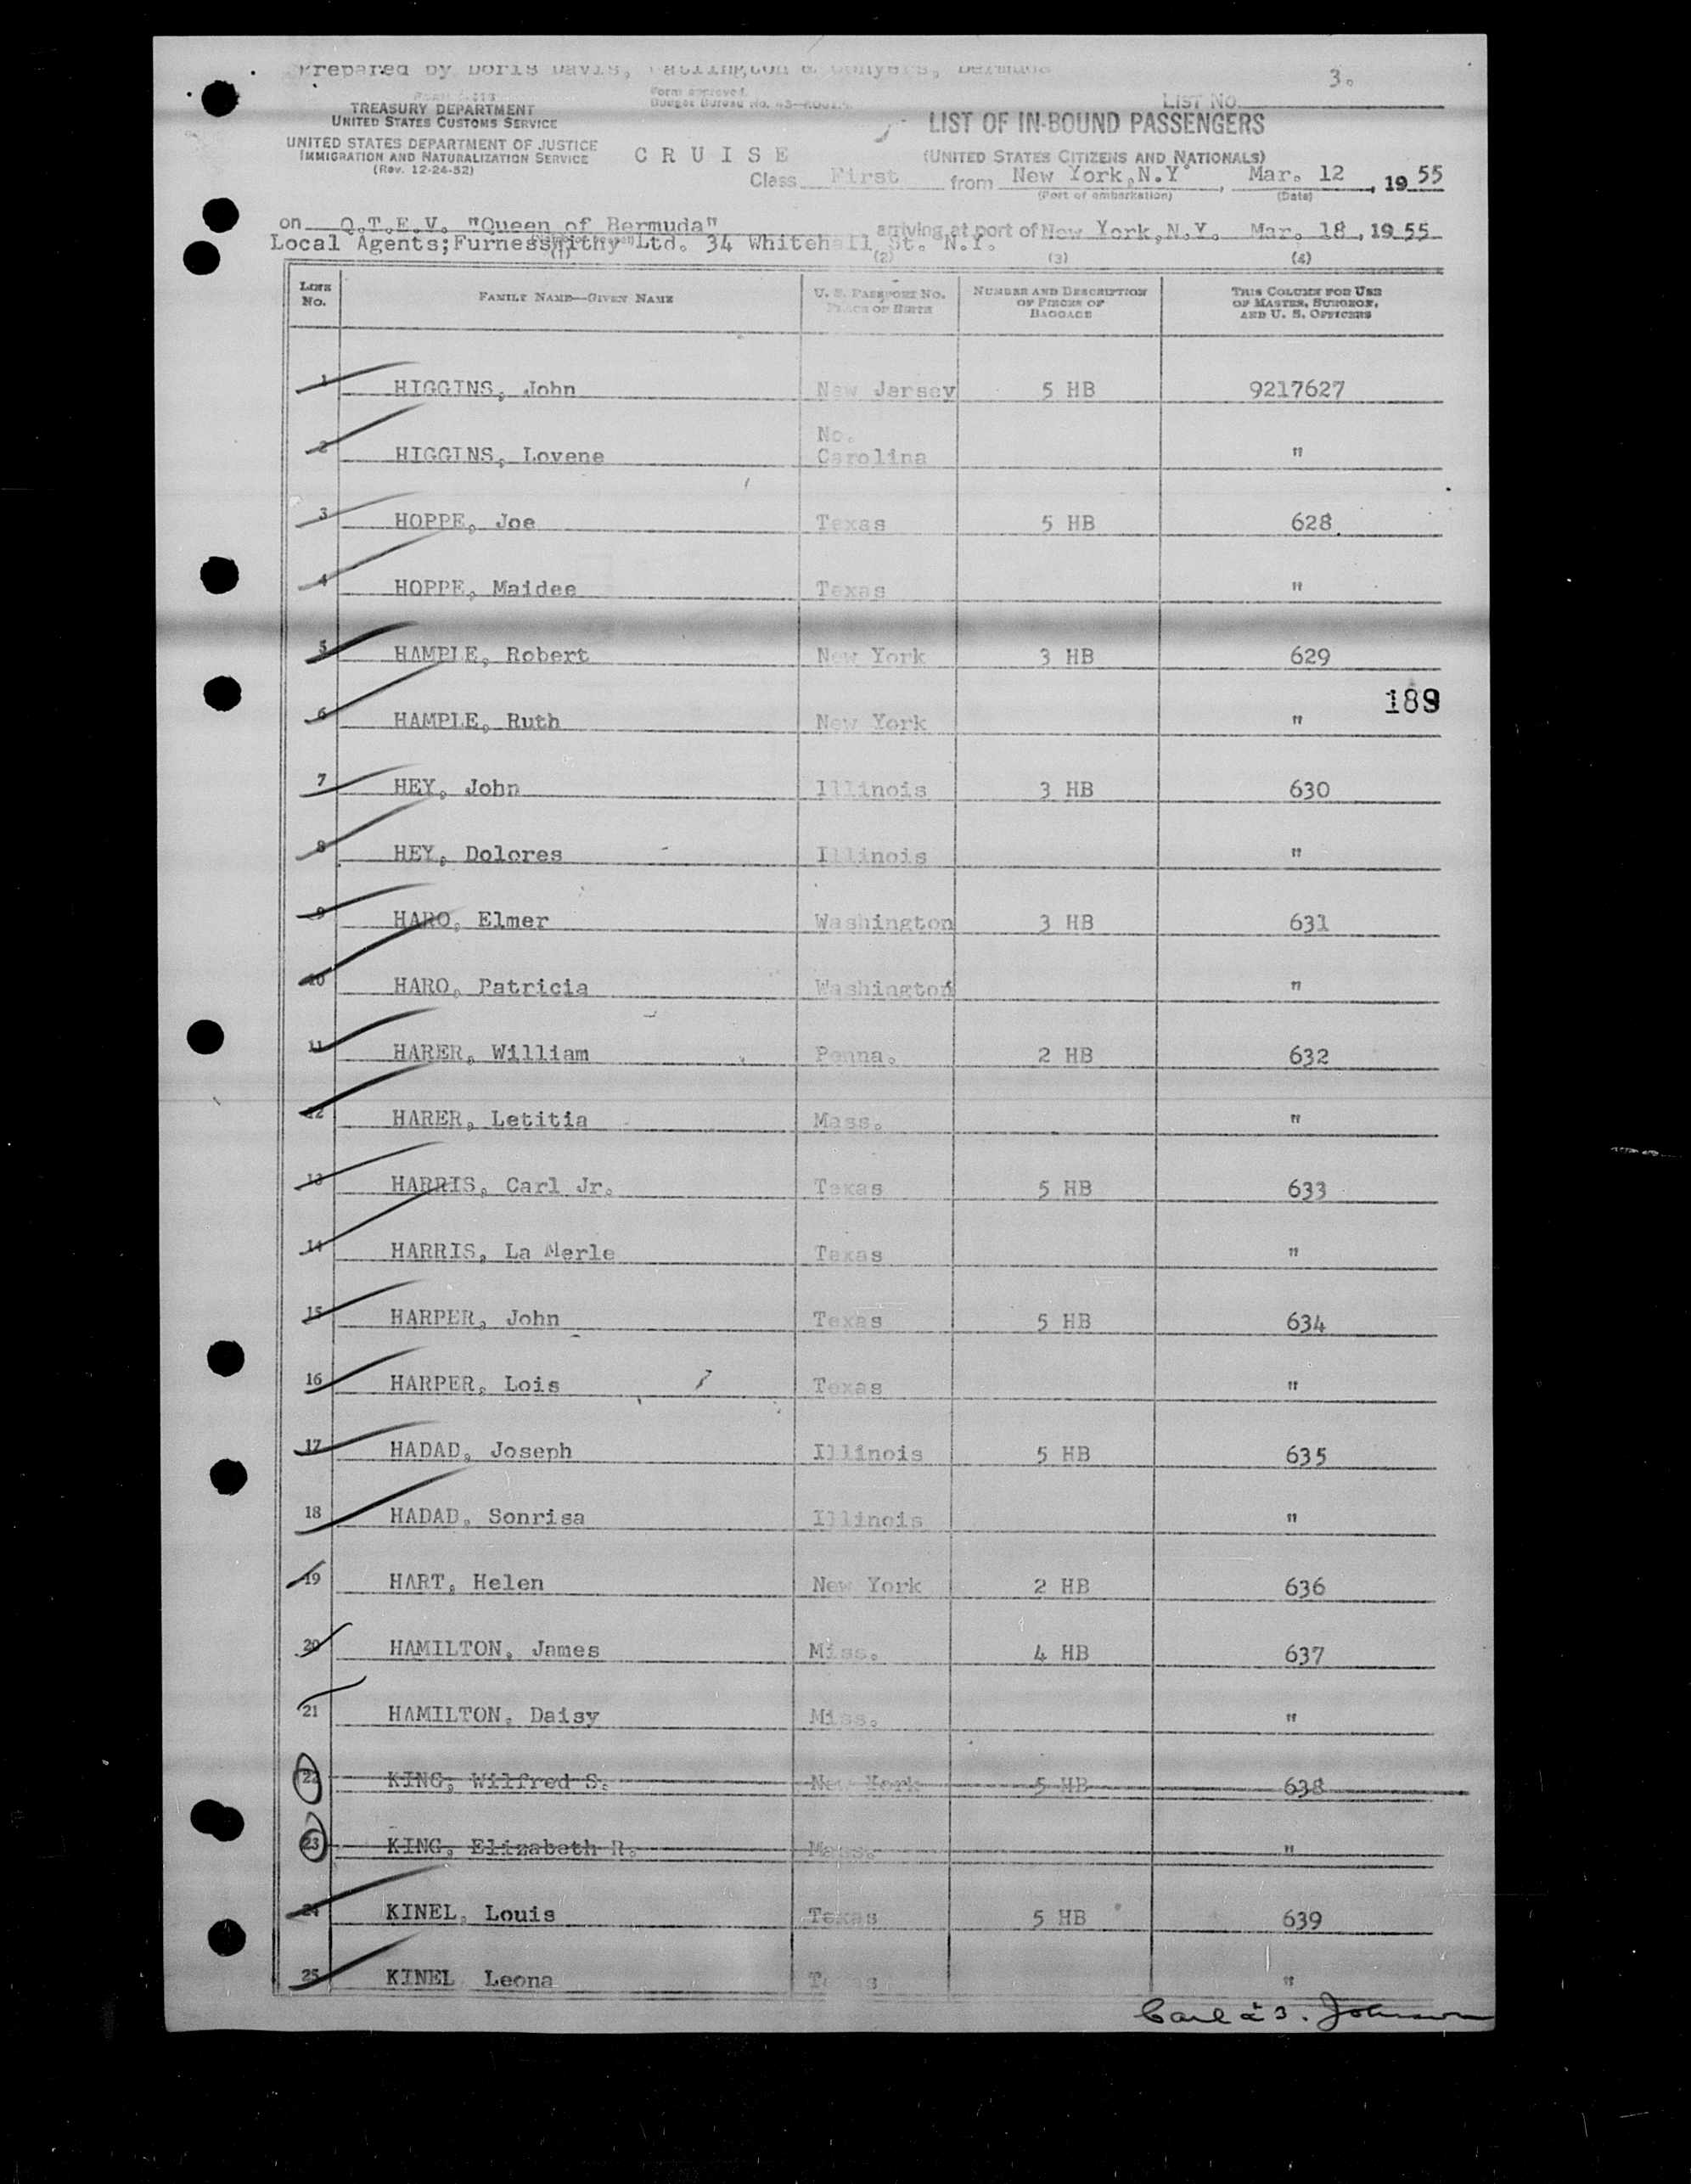 Prepared by Doris Davis, Watlington & Conyers, Bermuda
3.
Form approved.
Budget Bureau No. 43-
LIST NO.
TREASURY DEPARTMENT
UNITED STATES CUSTOMS SERVICE
LIST OF IN-BOUND PASSENGERS
UNITED STATES DEPARTMENT OF JUSTICE
IMMIGRATION AND NATURALIZATION SERVICE
(Rev. 12-24-52)
CRUISE
(UNITED STATES CITIZENS AND NATIONALS)
Class First from New York, N.Y. , Mar. 12 , 19 55
(Port of embarkation) (Date)
on Q.T.E.V. "Queen of Bermuda" arriving at port of New York, N.Y. Mar. 18, 19 55
Local Agents; Furness Withy Ltd. 34 Whitehall St. N.Y.
(1) (2) (3) (4)
LINE No. FAMILY NAME—GIVEN NAME U. S. PASSPORT NO. PLACE OF BIRTH NUMBER AND DESCRIPTION OF PIECES OF BAGGAGE THIS COLUMN FOR USE OF MASTER, SURGEON, AND U. S. OFFICERS
1 HIGGINS, John New Jersey 5 HB 9217627
2 HIGGINS, Lovene No. Carolina "
3 HOPPE, Joe Texas 5 HB 628
4 HOPPE, Maidee Texas "
5 HAMPLE, Robert New York 3 HB 629
189
6 HAMPLE, Ruth New York "
7 HEY, John Illinois 3 HB 630
8 HEY, Dolores Illinois "
9 HARO, Elmer Washington 3 HB 631
10 HARO, Patricia Washington "
11 HARER, William Penna. 2 HB 632
12 HARER, Letitia Mass. "
13 HARRIS, Carl Jr. Texas 5 HB 633
14 HARRIS, La Merle Texas "
15 HARPER, John Texas 5 HB 634
16 HARPER, Lois Texas "
17 HADAD, Joseph Illinois 5 HB 635
18 HADAD, Sonrisa Illinois "
19 HART, Helen New York 2 HB 636
20 HAMILTON, James Miss. 4 HB 637
21 HAMILTON, Daisy Miss. "
22 KING, Wilfred S. New York 5 HB 638
23 KING, Elizabeth R. Mass. "
24 KINEL, Louis Texas 5 HB 639
25 KINEL Leona Texas "
Carl Johnson